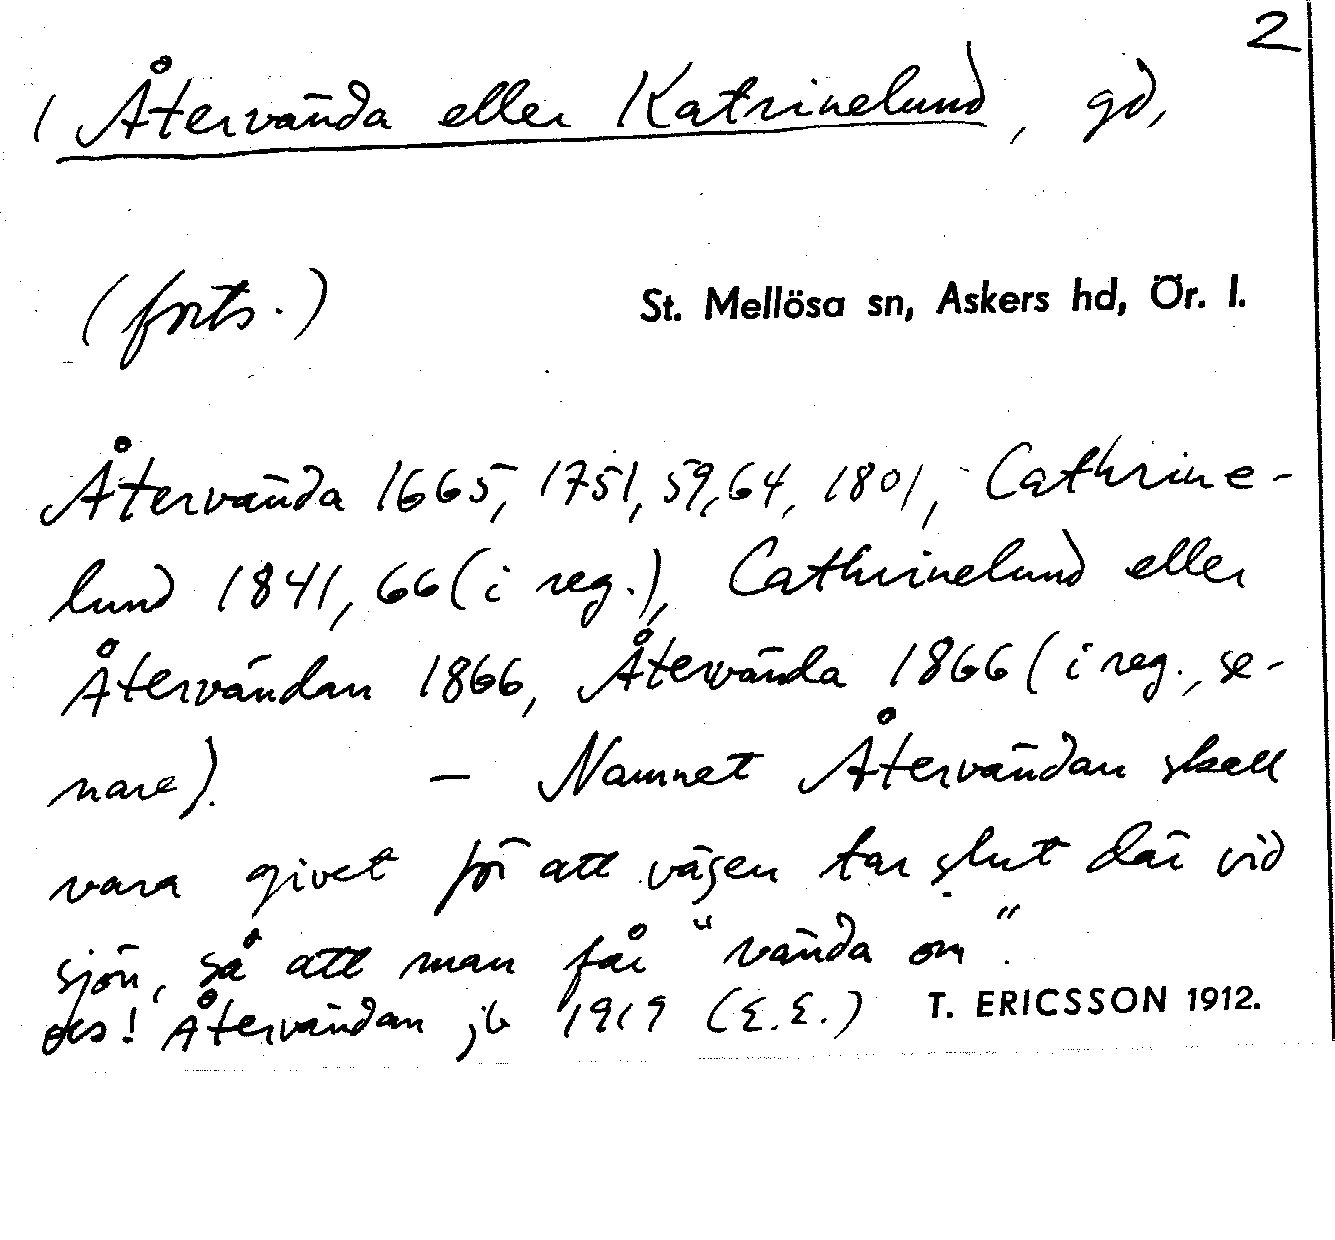 2
/ Återvända eller Katrinelund, gd,
(forts.)
St. Mellösa sn, Askers hd, Ör. l.
Återvända 1665, 1751, 59, 64, 1801, Cathrine-
lund 1841, 66 (i reg.), Cathrinelund eller
Återvändan 1866, Återvända 1866 (i reg., se-
nare). — Namnet Återvändan skall
vara givet för att vägen tar slut där vid
sjön, så att man får "vända om".
obs! Återvändan jb 1919 (E.E.) T. ERICSSON 1912.